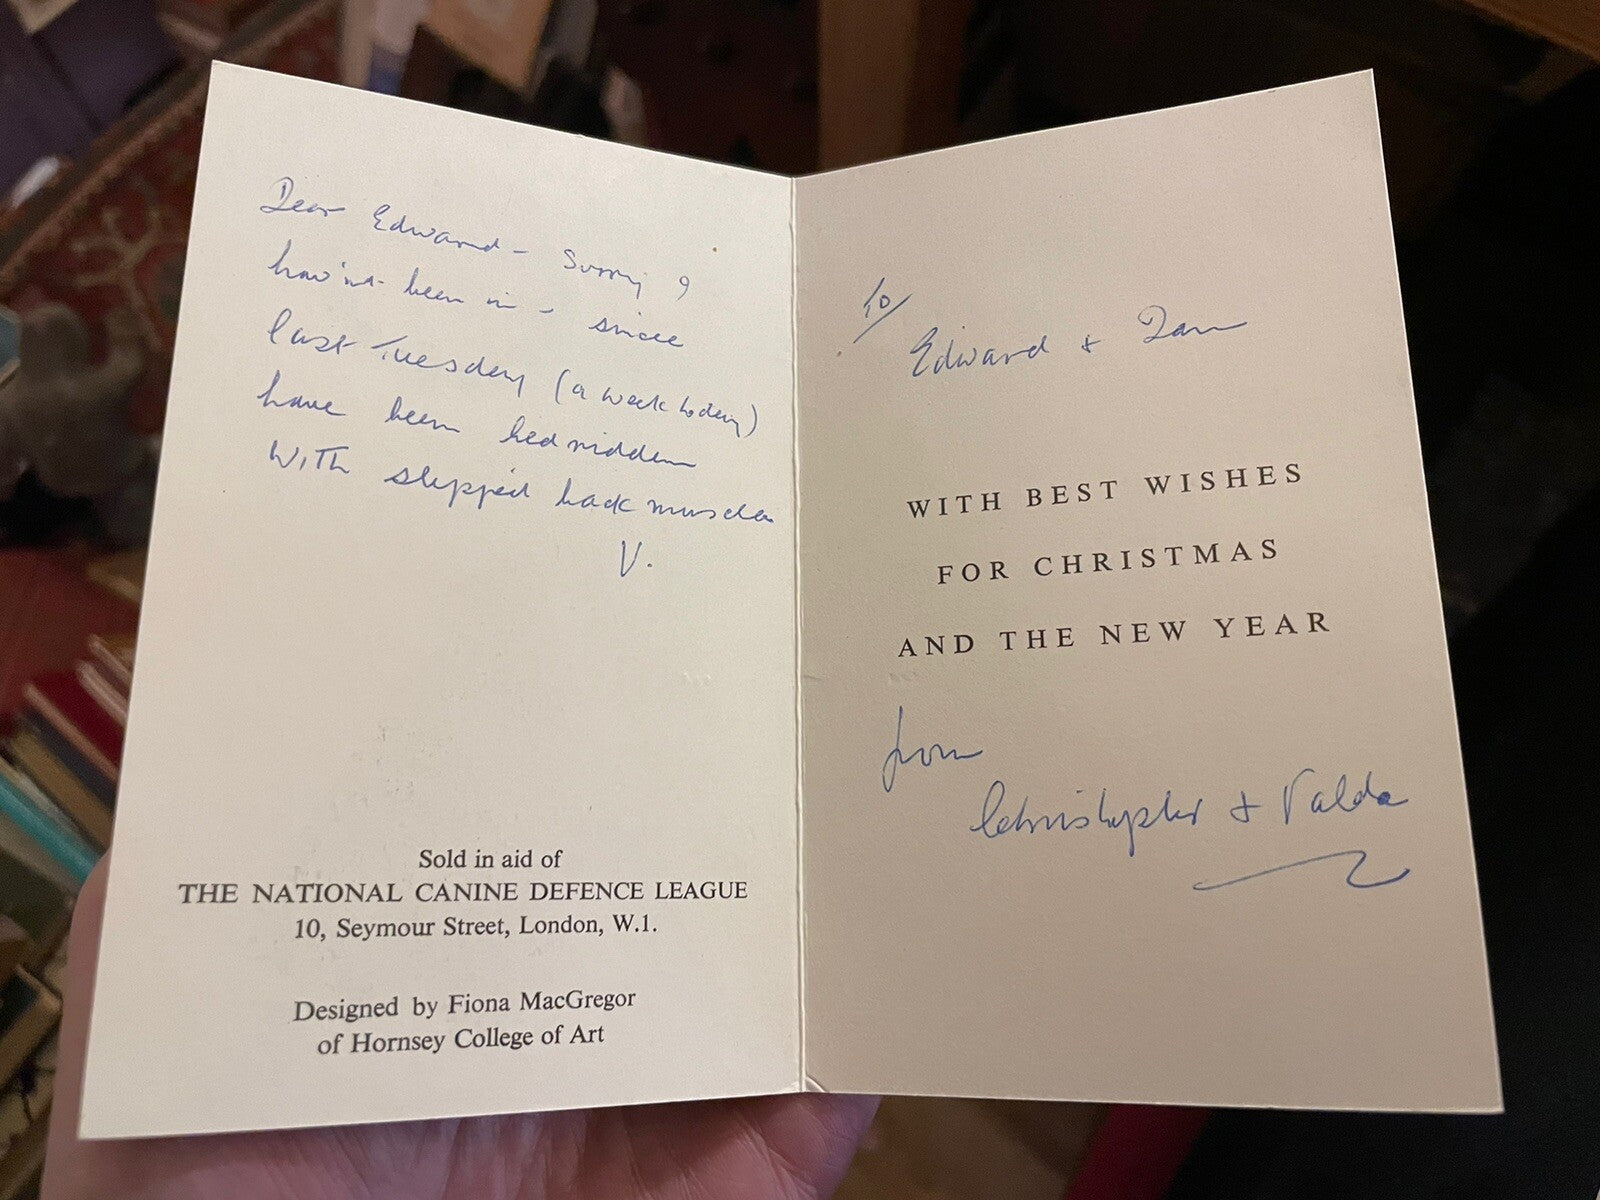 Dear Edward - Sorry I
hav'nt been in - since
last Tuesday (a week today)
have been bedridden
WITH slipped back muscles
V.
Sold in aid of
THE NATIONAL CANINE DEFENCE LEAGUE
10, Seymour Street, London, W.1.
Designed by Fiona MacGregor
of Hornsey College of Art
To
Edward +
WITH BEST WISHES
FOR CHRISTMAS
AND THE NEW YEAR
from
Christopher + Valda